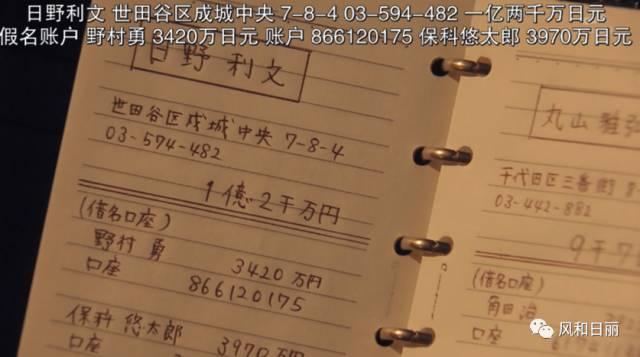 日野利文 世田谷区成城中央 7-8-4 03-594-482 一亿两千万日元
假名账户 野村勇 3420万日元 账户 866120175 保科悠太郎 3970万日元
日野 利文
世田谷区成城中央 7-8-4
03-574-482
1億2千万円
(借名口座)
野村 勇 3420万円
口座 866120175
保科 悠太郎 3970万円
口座
丸山
千代田区三番街
03-442-882
9千7
(借名口座)
角田 治
口座
风和日丽